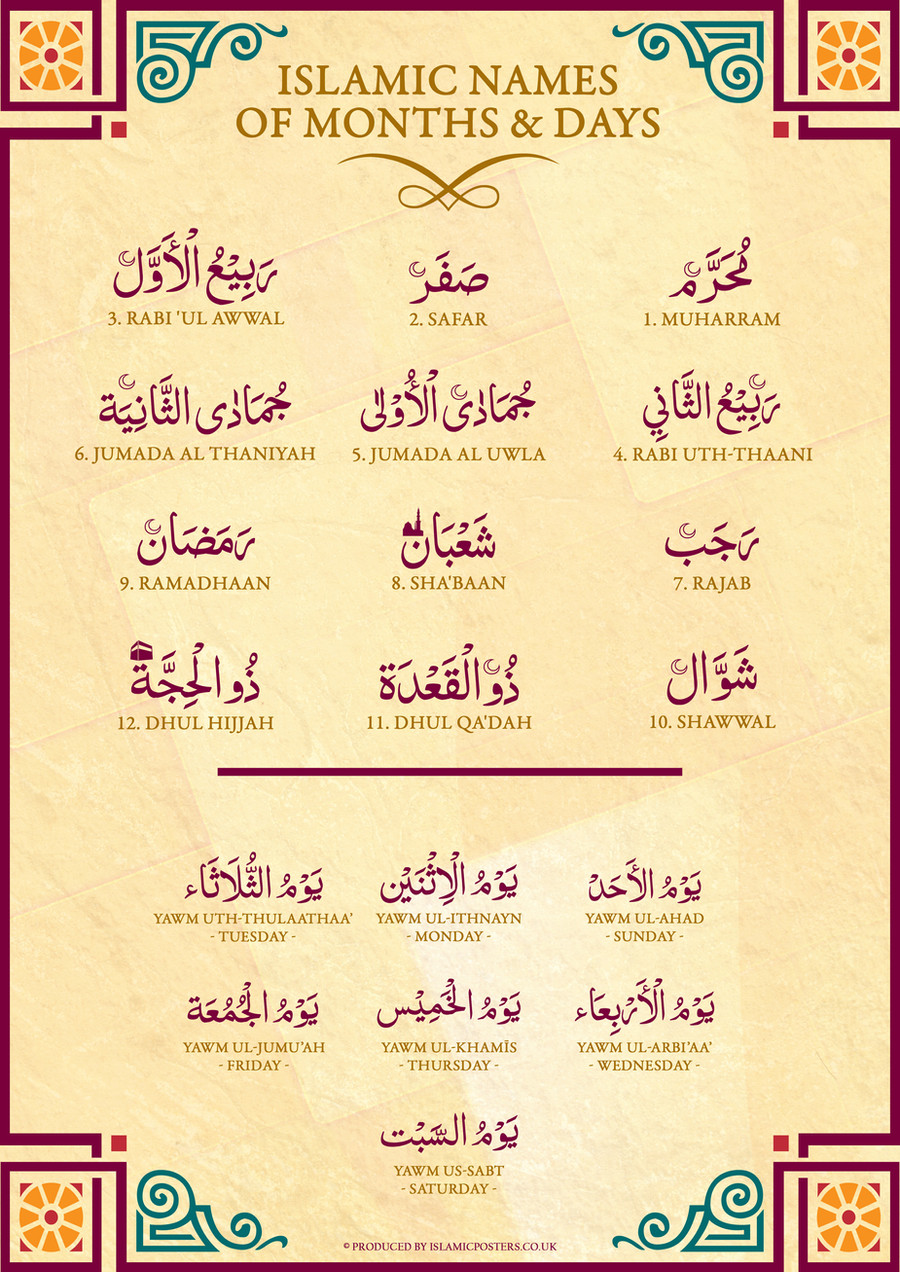 ISLAMIC NAMES
OF MONTHS & DAYS
مُحَرَّم
1. MUHARRAM
صَفَر
2. SAFAR
رَبِيْعُ الْأَوَّل
3. RABI 'UL AWWAL
رَبِيْعُ الثَّانِي
4. RABI UTH-THAANI
جُمَادٰى الْأُوْلٰى
5. JUMADA AL UWLA
جُمَادٰى الثَّانِيَة
6. JUMADA AL THANIYAH
رَجَب
7. RAJAB
شَعْبَان
8. SHA'BAAN
رَمَضَان
9. RAMADHAAN
شَوَّال
10. SHAWWAL
ذُو الْقَعْدَة
11. DHUL QA'DAH
ذُو الْحِجَّة
12. DHUL HIJJAH
يَوْمُ الأَحَدْ
YAWM UL-AHAD
- SUNDAY -
يَوْمُ الْاِثْنَيْن
YAWM UL-ITHNAYN
- MONDAY -
يَوْمُ الثُّلَاثَاء
YAWM UTH-THULAATHAA’
- TUESDAY -
يَوْمُ الْأَرْبِعَاء
YAWM UL-ARBI’AA’
- WEDNESDAY -
يَوْمُ الْخَمِيْس
YAWM UL-KHAMĪS
- THURSDAY -
يَوْمُ الْجُمُعَة
YAWM UL-JUMU’AH
- FRIDAY -
يَوْمُ السَّبْت
YAWM US-SABT
- SATURDAY -
© PRODUCED BY ISLAMICPOSTERS.CO.UK